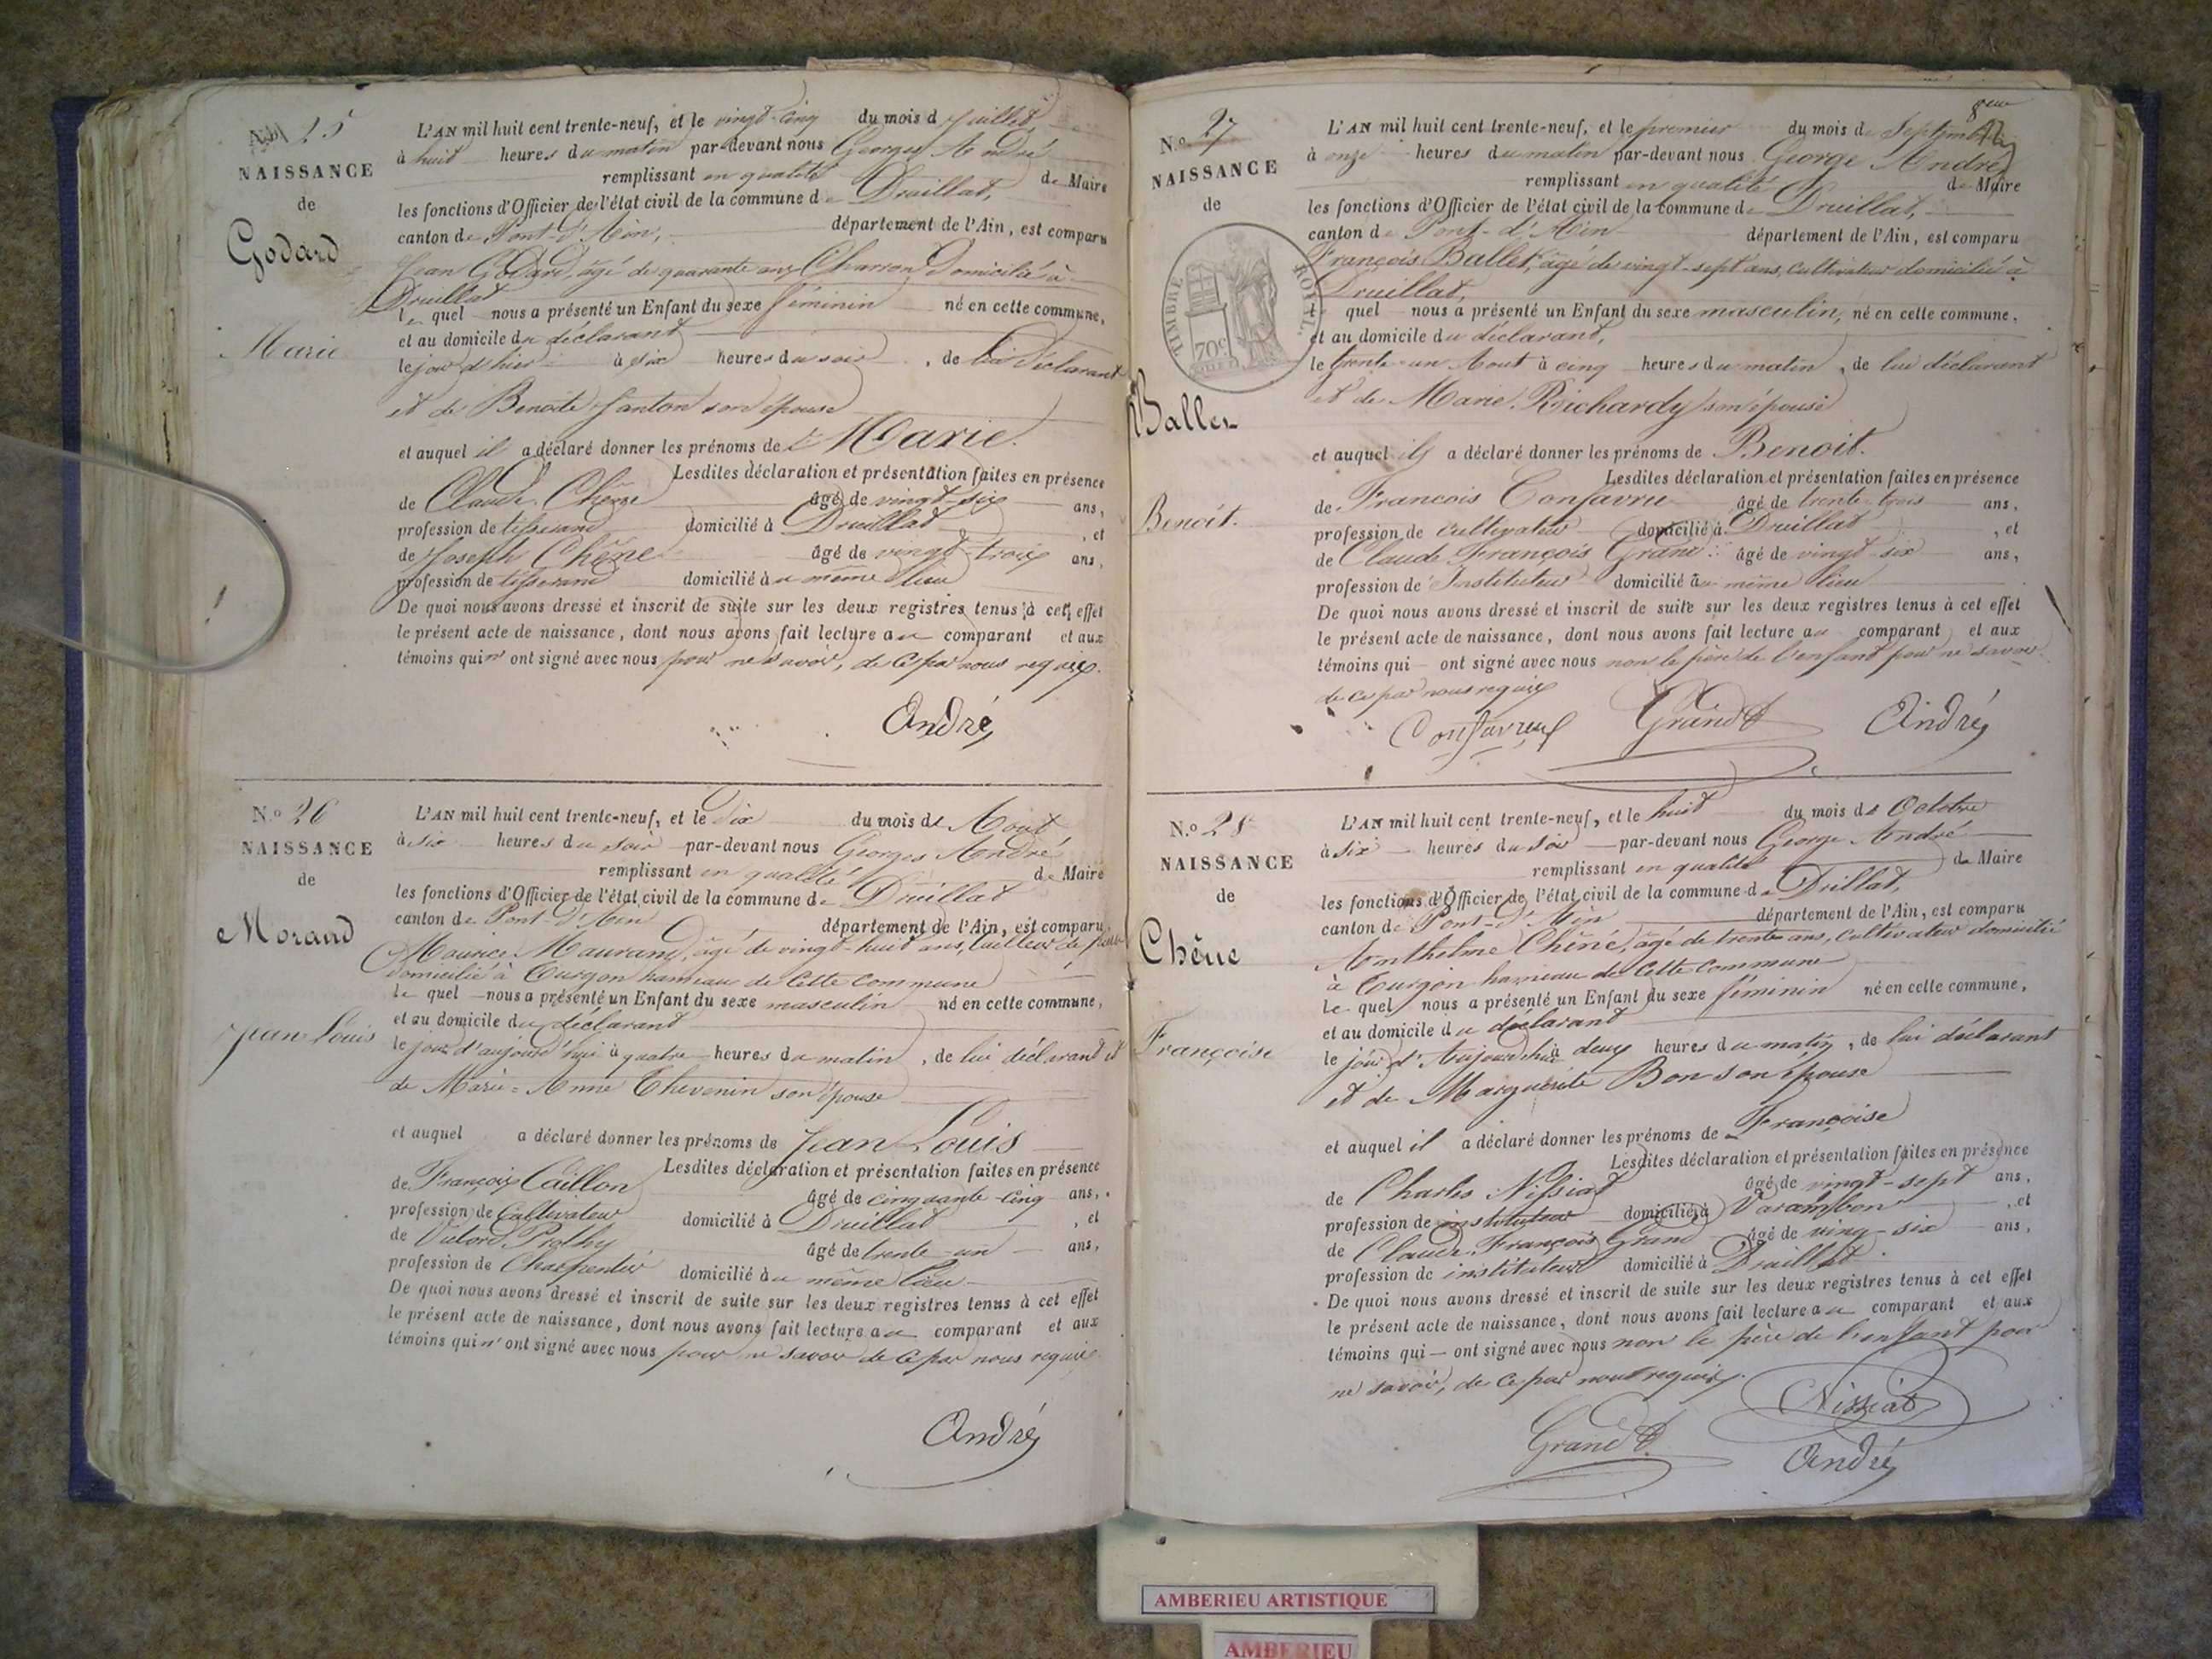 N.º 25
NAISSANCE
de
Godard
Marie
L'AN mil huit cent trente-neuf, et le vingt-cinq du mois d Juillet
à huit heures du matin par-devant nous Georges André
remplissant en qualité de Maire
les fonctions d'Officier de l'état civil de la commune de Druillat,
canton de Pont-d'Ain, département de l'Ain, est comparu
Jean Godard, âgé de quarante ans, Charron domicilié à
Druillat
le quel nous a présenté un Enfant du sexe féminin né en cette commune,
et au domicile du déclarant
le jour d'hier à six heures du soir, de lui déclarant
et de Benoite Janton son épouse
et auquel il a déclaré donner les prénoms de Marie.
Lesdites déclaration et présentation faites en présence
de Claude Chêne âgé de vingt-six ans,
profession de tisserand domicilié à Druillat, et
de Joseph Chêne âgé de vingt-trois ans,
profession de tisserand domicilié au même lieu
De quoi nous avons dressé et inscrit de suite sur les deux registres tenus à cet effet
le présent acte de naissance, dont nous avons fait lecture au comparant et aux
témoins qui n' ont signé avec nous pour ne savoir, de ce par nous requis.
André
N.º 26
NAISSANCE
de
Morand
Jean Louis
L'AN mil huit cent trente-neuf, et le dix du mois de Aout
à six heures du soir par-devant nous Georges André
remplissant en qualité de Maire
les fonctions d'Officier de l'état civil de la commune de Druillat
canton de Pont-d'Ain département de l'Ain, est comparu
Maurice Maurand, âgé de vingt-huit ans, tailleur de pierre
domicilié à Turgon hameau de cette commune
le quel nous a présenté un Enfant du sexe masculin né en cette commune,
et au domicile du déclarant
le jour d'aujourd'hui à quatre heures du matin, de lui déclarant et
de Marie-Anne Thevenin son épouse
et auquel a déclaré donner les prénoms de Jean Louis
Lesdites déclaration et présentation faites en présence
de François Caillon âgé de cinquante-cinq ans,
profession de Cultivateur domicilié à Druillat, et
de Victord Prothy âgé de trente-un ans,
profession de Charpentier domicilié au même lieu
De quoi nous avons dressé et inscrit de suite sur les deux registres tenus à cet effet
le présent acte de naissance, dont nous avons fait lecture au comparant et aux
témoins qui n' ont signé avec nous pour ne savoir de ce par nous requis.
André
N.º 27
NAISSANCE
de
TIMBRE ROYAL
70c
Ballet
Benoit.
L'AN mil huit cent trente-neuf, et le premier du mois de Septembre
à onze heures du matin par-devant nous George André
remplissant en qualité de Maire
les fonctions d'Officier de l'état civil de la commune de Druillat,
canton de Pont-d'Ain département de l'Ain, est comparu
François Ballet, âgé de vingt-sept ans, cultivateur domicilié à
Druillat,
quel nous a présenté un Enfant du sexe masculin, né en cette commune,
et au domicile du déclarant,
le trente-un Aout à cinq heures du matin, de lui déclarant
et de Marie Richardy son épouse
et auquel il a déclaré donner les prénoms de Benoit.
Lesdites déclaration et présentation faites en présence
de François Confavreu âgé de trente-trois ans,
profession de cultivateur domicilié à Druillat, et
de Claude François Grand âgé de vingt-six ans,
profession de Instituteur domicilié au même lieu
De quoi nous avons dressé et inscrit de suite sur les deux registres tenus à cet effet
le présent acte de naissance, dont nous avons fait lecture au comparant et aux
témoins qui ont signé avec nous non le père de l'enfant pour ne savoir
de ce par nous requis
Confavreux Grand André
N.º 28
NAISSANCE
de
Chêne
Françoise
L'AN mil huit cent trente-neuf, et le huit du mois de Octobre
à six heures du soir par-devant nous George André
remplissant en qualité de Maire
les fonctions d'Officier de l'état civil de la commune de Drillat,
canton de Pont-d'Ain département de l'Ain, est comparu
Anthelme Chêne, âgé de trente ans, cultivateur domicilié
à Turgon hameau de cette commune
Le quel nous a présenté un Enfant du sexe féminin né en cette commune,
et au domicile du déclarant
le jour d'Aujourd'hui à deux heures du matin, de lui déclarant
et de Marguerite Bon son épouse
et auquel il a déclaré donner les prénoms de Françoise
Lesdites déclaration et présentation faites en présence
de Charles Nissiat âgé de vingt-sept ans,
profession de instituteur domicilié à Varambon, et
de Claude François Grand âgé de ving-six ans,
profession de instituteur domicilié à Druillat.
De quoi nous avons dressé et inscrit de suite sur les deux registres tenus à cet effet
le présent acte de naissance, dont nous avons fait lecture au comparant et aux
témoins qui — ont signé avec nous non le père de l'enfant pour
ne savoir, de ce par nous requis.
Nissiat
Grand André
AMBERIEU ARTISTIQUE
AMBERIEU